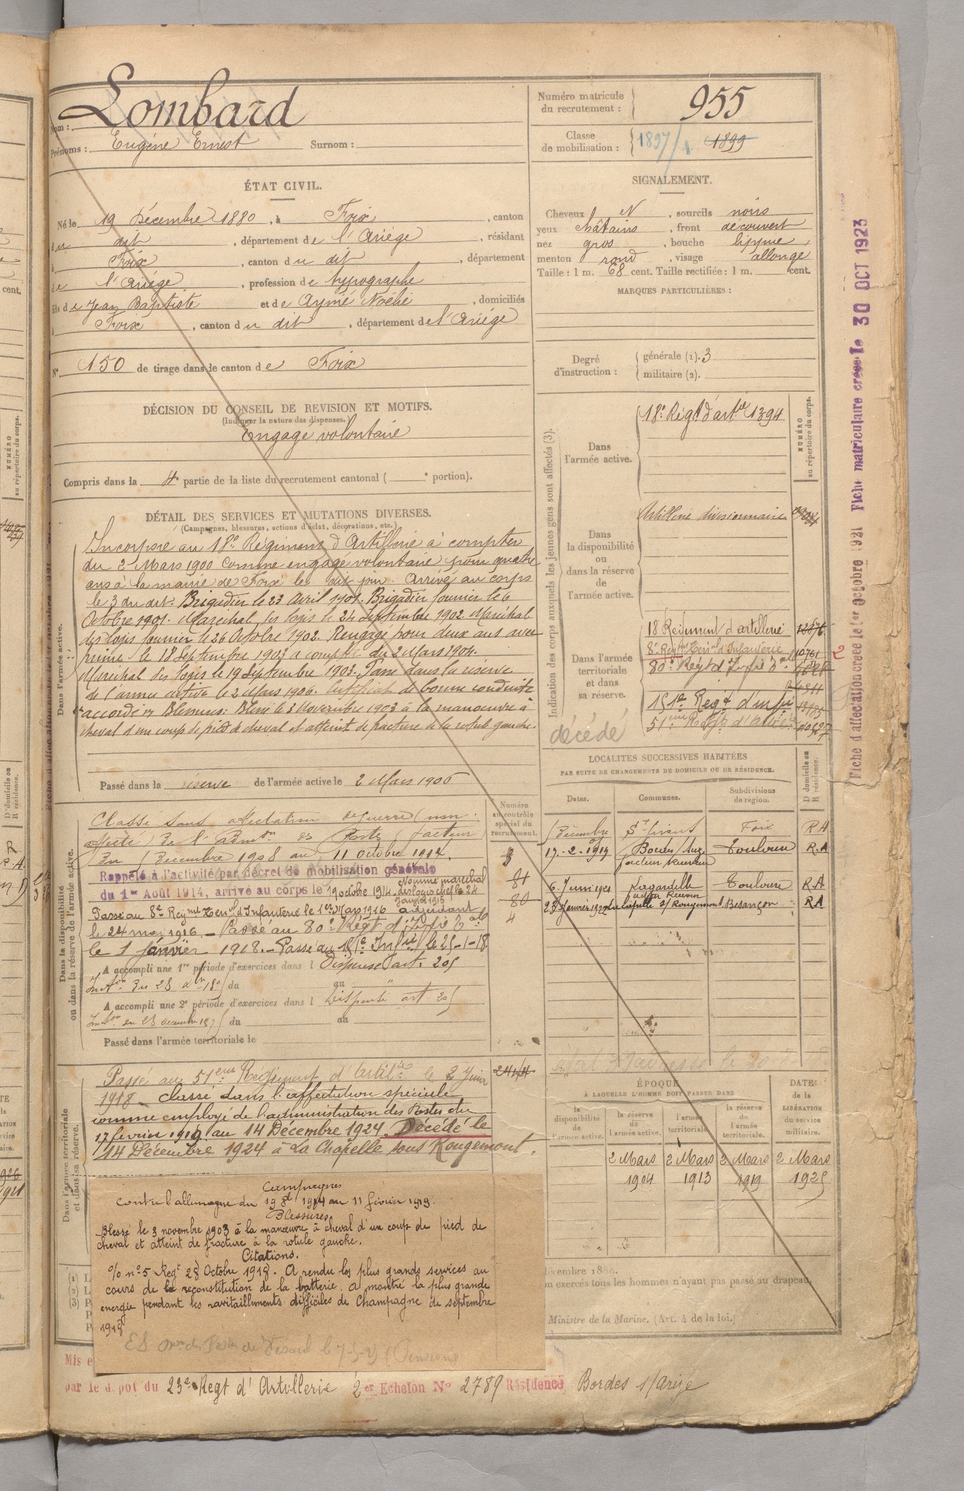 Nom : Lombard
Prénoms : Eugène Ernest Surnom :
Numéro matricule du recrutement : 955
Classe de mobilisation : 1897/1 1899
ÉTAT CIVIL.
Né le 19 Décembre 1880, à Foix, canton
du dit, département de l'Ariège, résidant
à Foix, canton du dit, département
de l'Ariège, profession de typographe
fils de Jean Baptiste et de Aymé Noélie, domiciliés
à Foix, canton du dit, département de l'Ariège
N° 150 de tirage dans le canton de Foix
SIGNALEMENT.
Cheveux N, sourcils noirs
yeux châtains, front découvert
nez gros, bouche lippue
menton rond, visage allongé
Taille : 1 m. 68 cent. Taille rectifiée : 1 m. cent.
MARQUES PARTICULIÈRES :
Degré d'instruction : générale (1). 3
militaire (2).
DÉCISION DU CONSEIL DE REVISION ET MOTIFS.
(Indiquer la nature des dispenses.)
Engagé volontaire
Compris dans la 4e partie de la liste du recrutement cantonal ( e portion).
DÉTAIL DES SERVICES ET MUTATIONS DIVERSES.
(Campagnes, blessures, actions d'éclat, décorations, etc.)
Dans l'armée active.
Incorporé au 18e Régiment d'Artillerie à compter
du 2 Mars 1900 comme engagé volontaire pour quatre
ans à la mairie de Foix le dit jour. Arrivé au corps
le 3 du dit. Brigadier le 23 Avril 1901. Brigadier fourrier le 6
Octobre 1901. Maréchal des logis le 24 Septembre 1902. Maréchal
des logis fourrier le 26 Octobre 1902. Rengagé pour deux ans avec
prime le 18 Septembre 1903 à compter du 2 Mars 1904.
Maréchal des logis le 19 Septembre 1903. Passé dans la réserve
de l'armée active le 2 Mars 1906. Certificat de bonne conduite
accordé. Blessures. Blessé le 3 Novembre 1903 à la manœuvre à
cheval d'un coup de pied de cheval et atteint de fracture de la rotule gauche.
Passé dans la réserve de l'armée active le 2 Mars 1906
Dans la disponibilité ou dans la réserve de l'armée active.
Numéro au contrôle spécial du recrutement.
Classé sans affectation de guerre (non
affecté) De l'Admon des Postes (facteur)
Du 1 Décembre 1908 au 11 octobre 1914.
Rappelé à l'activité par décret de mobilisation générale
du 1er Août 1914, arrivé au corps le 19 octobre 1914.
Passé au 8e Régiment Terral d'Infanterie le 1er Mars 1916 adjudant
le 24 mai 1916. Passé au 80e Régt d'Infie
le 1 Janvier 1918. Passé au 151e Infie le 25-1-18
A accompli une 1re période d'exercices dans l Dispensé art. 205
du au
A accompli une 2e période d'exercices dans l Dispensé art 205
du au
Passé dans l'armée territoriale le
Dans l'armée territoriale et dans sa réserve.
Passé au 51eme Régiment d'Artillie le 2 Juin
1918. classé dans l'affectation spéciale
comme employé de l'administration des Postes du
17 février 1919 au 14 Décembre 1924. Décédé le
14 Décembre 1924 à La Chapelle sous Rougemont.
Campagnes
Contre l'allemagne du 19 8bre 1914 au 11 février 1919.
Blessures
Blessé le 3 novembre 1903 à la manœuvre à cheval d'un coup de pied de
cheval et atteint de fracture à la rotule gauche.
Citations.
O/ n° 5 Regt 25 Octobre 1918. A rendu les plus grands services au
cours de la reconstitution de la batterie. a montré la plus grande
énergie pendant les ravitaillements difficiles de Champagne de septembre
1918
par le dépôt du 23e Régt d'Artillerie 2er Echelon N° 2789 Résidence Bordes s/Arize
Indication des corps auxquels les jeunes gens sont affectés (3).
NUMÉRO au répertoire du corps.
Dans l'armée active. 18e Régt d'artie 1394
Dans la disponibilité ou dans la réserve de l'armée active. Artillerie divisionnaire
Dans l'armée territoriale et dans sa réserve.
18 Régiment d'artillerie
8e Régt Terral d'Infanterie
80e Régt d'Infie
151e Régt d'Infie
51eme Régt d'Artillie
décédé
LOCALITÉS SUCCESSIVES HABITÉES
PAR SUITE DE CHANGEMENTS DE DOMICILE OU DE RÉSIDENCE.
Dates. Communes. Subdivisions de région. D domicile ou R résidence.
1 Décembre St Girons Foix RA
17-2-1919 Bordes/Arize Toulouse R.A
6 Juin 1921 Lagardelle Toulouse RA
25 Janvier 1922 La Chapelle s/ Rougemont Besançon RA
ÉPOQUE
À LAQUELLE L'HOMME DOIT PASSER DANS
la disponibilité de l'armée active. la réserve de l'armée active. l'armée territoriale. la réserve de l'armée territoriale.
DATE DE LA LIBÉRATION DU SERVICE MILITAIRE.
2 Mars 1904 2 Mars 1913 2 Mars 1919 2 Mars 1925
Ministre de la Marine. (Art. 4 de la loi.)
Fiche d'affectation créée le 1er Octobre 1921 Fiche matriculaire créée le 30 OCT 1923